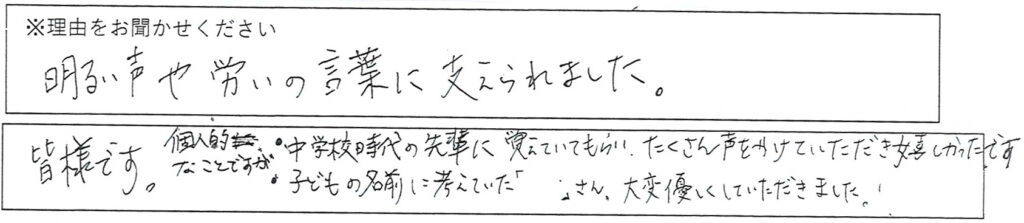 ※理由をお聞かせください
明るい声や労いの言葉に支えられました。
皆様です。個人的なことですが・中学校時代の先輩に覚えていてもらい、たくさん声をかけていただき嬉しかったです
・子どもの名前に考えていた「　」さん、大変優しくしていただきました。